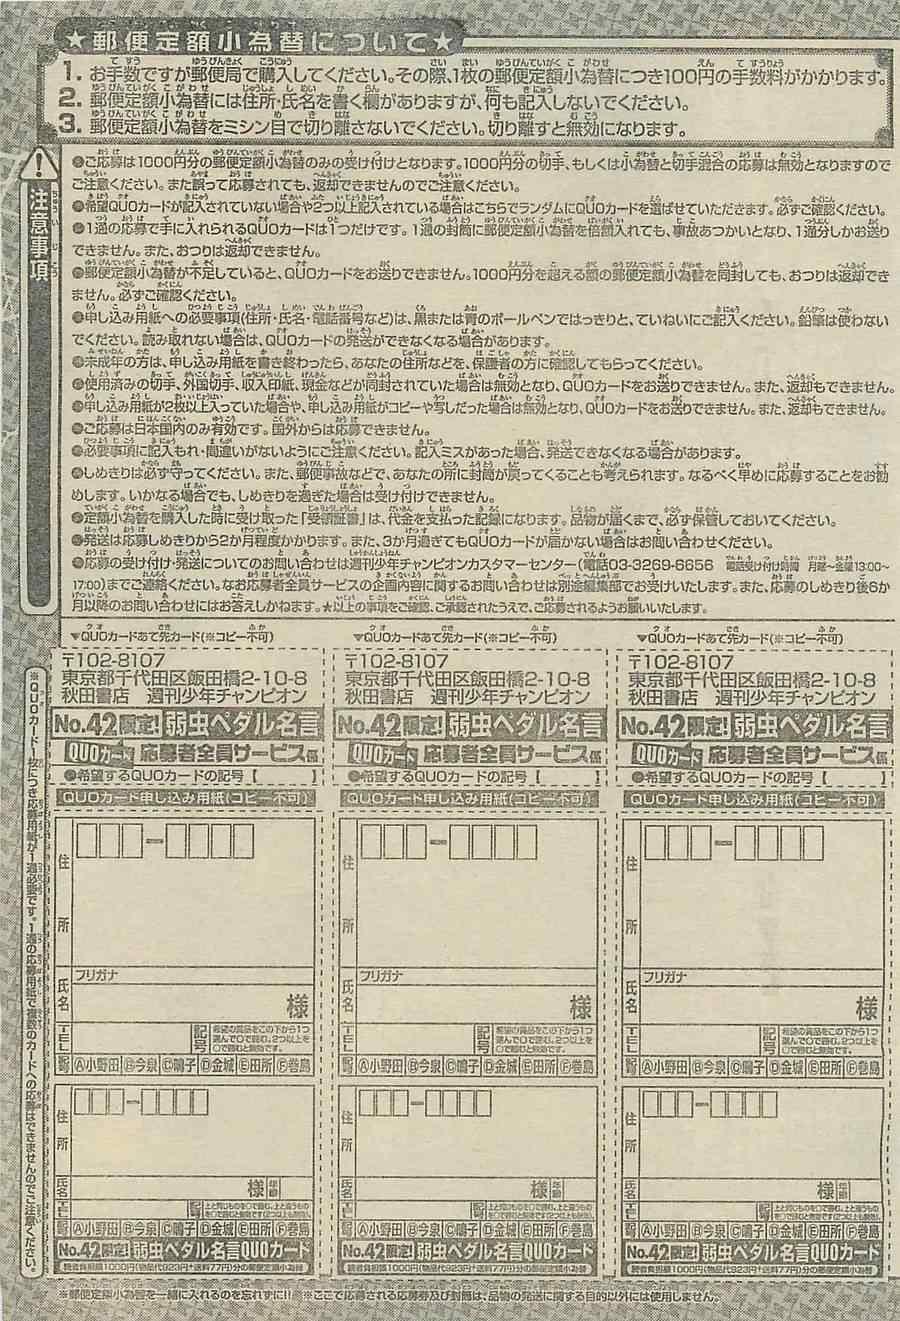 ★郵便定額小為替について★
1. お手数ですが郵便局で購入してください。その際、1枚の郵便定額小為替につき100円の手数料がかかります。
2. 郵便定額小為替には住所・氏名を書く欄がありますが、何も記入しないでください。
3. 郵便定額小為替をミシン目で切り離さないでください。切り離すと無効になります。
注意事項
●ご応募は1000円分の郵便定額小為替のみの受け付けとなります。1000円分の切手、もしくは小為替と切手混合の応募は無効となりますので
ご注意ください。また誤って応募されても、返却できませんのでご注意ください。
●希望QUOカードが記入されていない場合や2つ以上記入されている場合はこちらでランダムにQUOカードを選ばせていただきます。必ずご確認ください。
●1通の応募で手に入れられるQUOカードは1つだけです。1通の封筒に郵便定額小為替を倍額入れても、事故あつかいとなり、1通分しかお送り
できません。また、おつりは返却できません。
●郵便定額小為替が不足していると、QUOカードをお送りできません。1000円分を超える額の郵便定額小為替を同封しても、おつりは返却でき
ません。必ずご確認ください。
●申し込み用紙への必要事項(住所・氏名・電話番号など)は、黒または青のボールペンではっきりと、ていねいにご記入ください。鉛筆は使わない
でください。読み取れない場合は、QUOカードの発送ができなくなる場合があります。
●未成年の方は、申し込み用紙を書き終わったら、あなたの住所などを、保護者の方に確認してもらってください。
●使用済みの切手、外国切手、収入印紙、現金などが同封されていた場合は無効となり、QUOカードをお送りできません。また、返却もできません。
●申し込み用紙が2枚以上入っていた場合や、申し込み用紙がコピーや写しだった場合は無効となり、QUOカードをお送りできません。また、返却もできません。
●ご応募は日本国内のみ有効です。国外からは応募できません。
●必要事項に記入もれ・間違いがないようにご注意ください。記入ミスがあった場合、発送できなくなる場合があります。
●しめきりは必ず守ってください。また、郵便事故などで、あなたの所に封筒が戻ってくることも考えられます。なるべく早めに応募することをお勧
めします。いかなる場合でも、しめきりを過ぎた場合は受け付けできません。
●定額小為替を購入した時に受け取った「受領証書」は、代金を支払った記録になります。品物が届くまで、必ず保管しておいてください。
●発送は応募しめきりから2か月程度かかります。また、3か月過ぎてもQUOカードが届かない場合はお問い合わせください。
●応募の受け付け・発送についてのお問い合わせは週刊少年チャンピオンカスタマーセンター(電話03-3269-6656 電話受け付け時間 月曜〜金曜13:00〜
17:00)までご連絡ください。なお応募者全員サービスの企画内容に関するお問い合わせは別途編集部でお受けいたします。また、応募のしめきり後6か
月以降のお問い合わせにはお答えしかねます。★以上の事項をご確認、ご承認されたうえで、ご応募されるようお願いいたします。
▼QUOカードあて先カード(※コピー不可) ▼QUOカードあて先カード(※コピー不可) ▼QUOカードあて先カード(※コピー不可)
※QUOカード1枚につき応募用紙が1通必要です。1通の応募用紙で複数のカードへの応募はできませんのでご注意ください。
〒102-8107
東京都千代田区飯田橋2-10-8
秋田書店 週刊少年チャンピオン
No.42限定!弱虫ペダル名言
QUOカード 応募者全員サービス係
●希望するQUOカードの記号【 】
QUOカード申し込み用紙(コピー不可)
住所
フリガナ
氏名 様
TEL 記号 希望の賞品をこの下から1つ
選んで○で囲む。2つ以上を
○で囲むと無効です。
記号 Ⓐ小野田 Ⓑ今泉 Ⓒ鳴子 Ⓓ金城 Ⓔ田所 Ⓕ巻島
住所
氏名 様 年齢
TEL 記号 上と同じものを○で囲む。上と違うもの
を○で囲むと無効です(2つ以上も無効)。
記号 Ⓐ小野田 Ⓑ今泉 Ⓒ鳴子 Ⓓ金城 Ⓔ田所 Ⓕ巻島
No.42限定!弱虫ペダル名言QUOカード
読者負担額1000円(物品代923円+送料77円)分の郵便定額小為替
〒102-8107
東京都千代田区飯田橋2-10-8
秋田書店 週刊少年チャンピオン
No.42限定!弱虫ペダル名言
QUOカード 応募者全員サービス係
●希望するQUOカードの記号【 】
QUOカード申し込み用紙(コピー不可)
住所
フリガナ
氏名 様
TEL 記号 希望の賞品をこの下から1つ
選んで○で囲む。2つ以上を
○で囲むと無効です。
記号 Ⓐ小野田 Ⓑ今泉 Ⓒ鳴子 Ⓓ金城 Ⓔ田所 Ⓕ巻島
住所
氏名 様 年齢
TEL 記号 上と同じものを○で囲む。上と違うもの
を○で囲むと無効です(2つ以上も無効)。
記号 Ⓐ小野田 Ⓑ今泉 Ⓒ鳴子 Ⓓ金城 Ⓔ田所 Ⓕ巻島
No.42限定!弱虫ペダル名言QUOカード
読者負担額1000円(物品代923円+送料77円)分の郵便定額小為替
〒102-8107
東京都千代田区飯田橋2-10-8
秋田書店 週刊少年チャンピオン
No.42限定!弱虫ペダル名言
QUOカード 応募者全員サービス係
●希望するQUOカードの記号【 】
QUOカード申し込み用紙(コピー不可)
住所
フリガナ
氏名 様
TEL 記号 希望の賞品をこの下から1つ
選んで○で囲む。2つ以上を
○で囲むと無効です。
記号 Ⓐ小野田 Ⓑ今泉 Ⓒ鳴子 Ⓓ金城 Ⓔ田所 Ⓕ巻島
住所
氏名 様 年齢
TEL 記号 上と同じものを○で囲む。上と違うもの
を○で囲むと無効です(2つ以上も無効)。
記号 Ⓐ小野田 Ⓑ今泉 Ⓒ鳴子 Ⓓ金城 Ⓔ田所 Ⓕ巻島
No.42限定!弱虫ペダル名言QUOカード
読者負担額1000円(物品代923円+送料77円)分の郵便定額小為替
※郵便定額小為替を一緒に入れるのを忘れずに!! ※ここで応募される応募券及び封筒は、品物の発送に関する目的以外には使用しません。